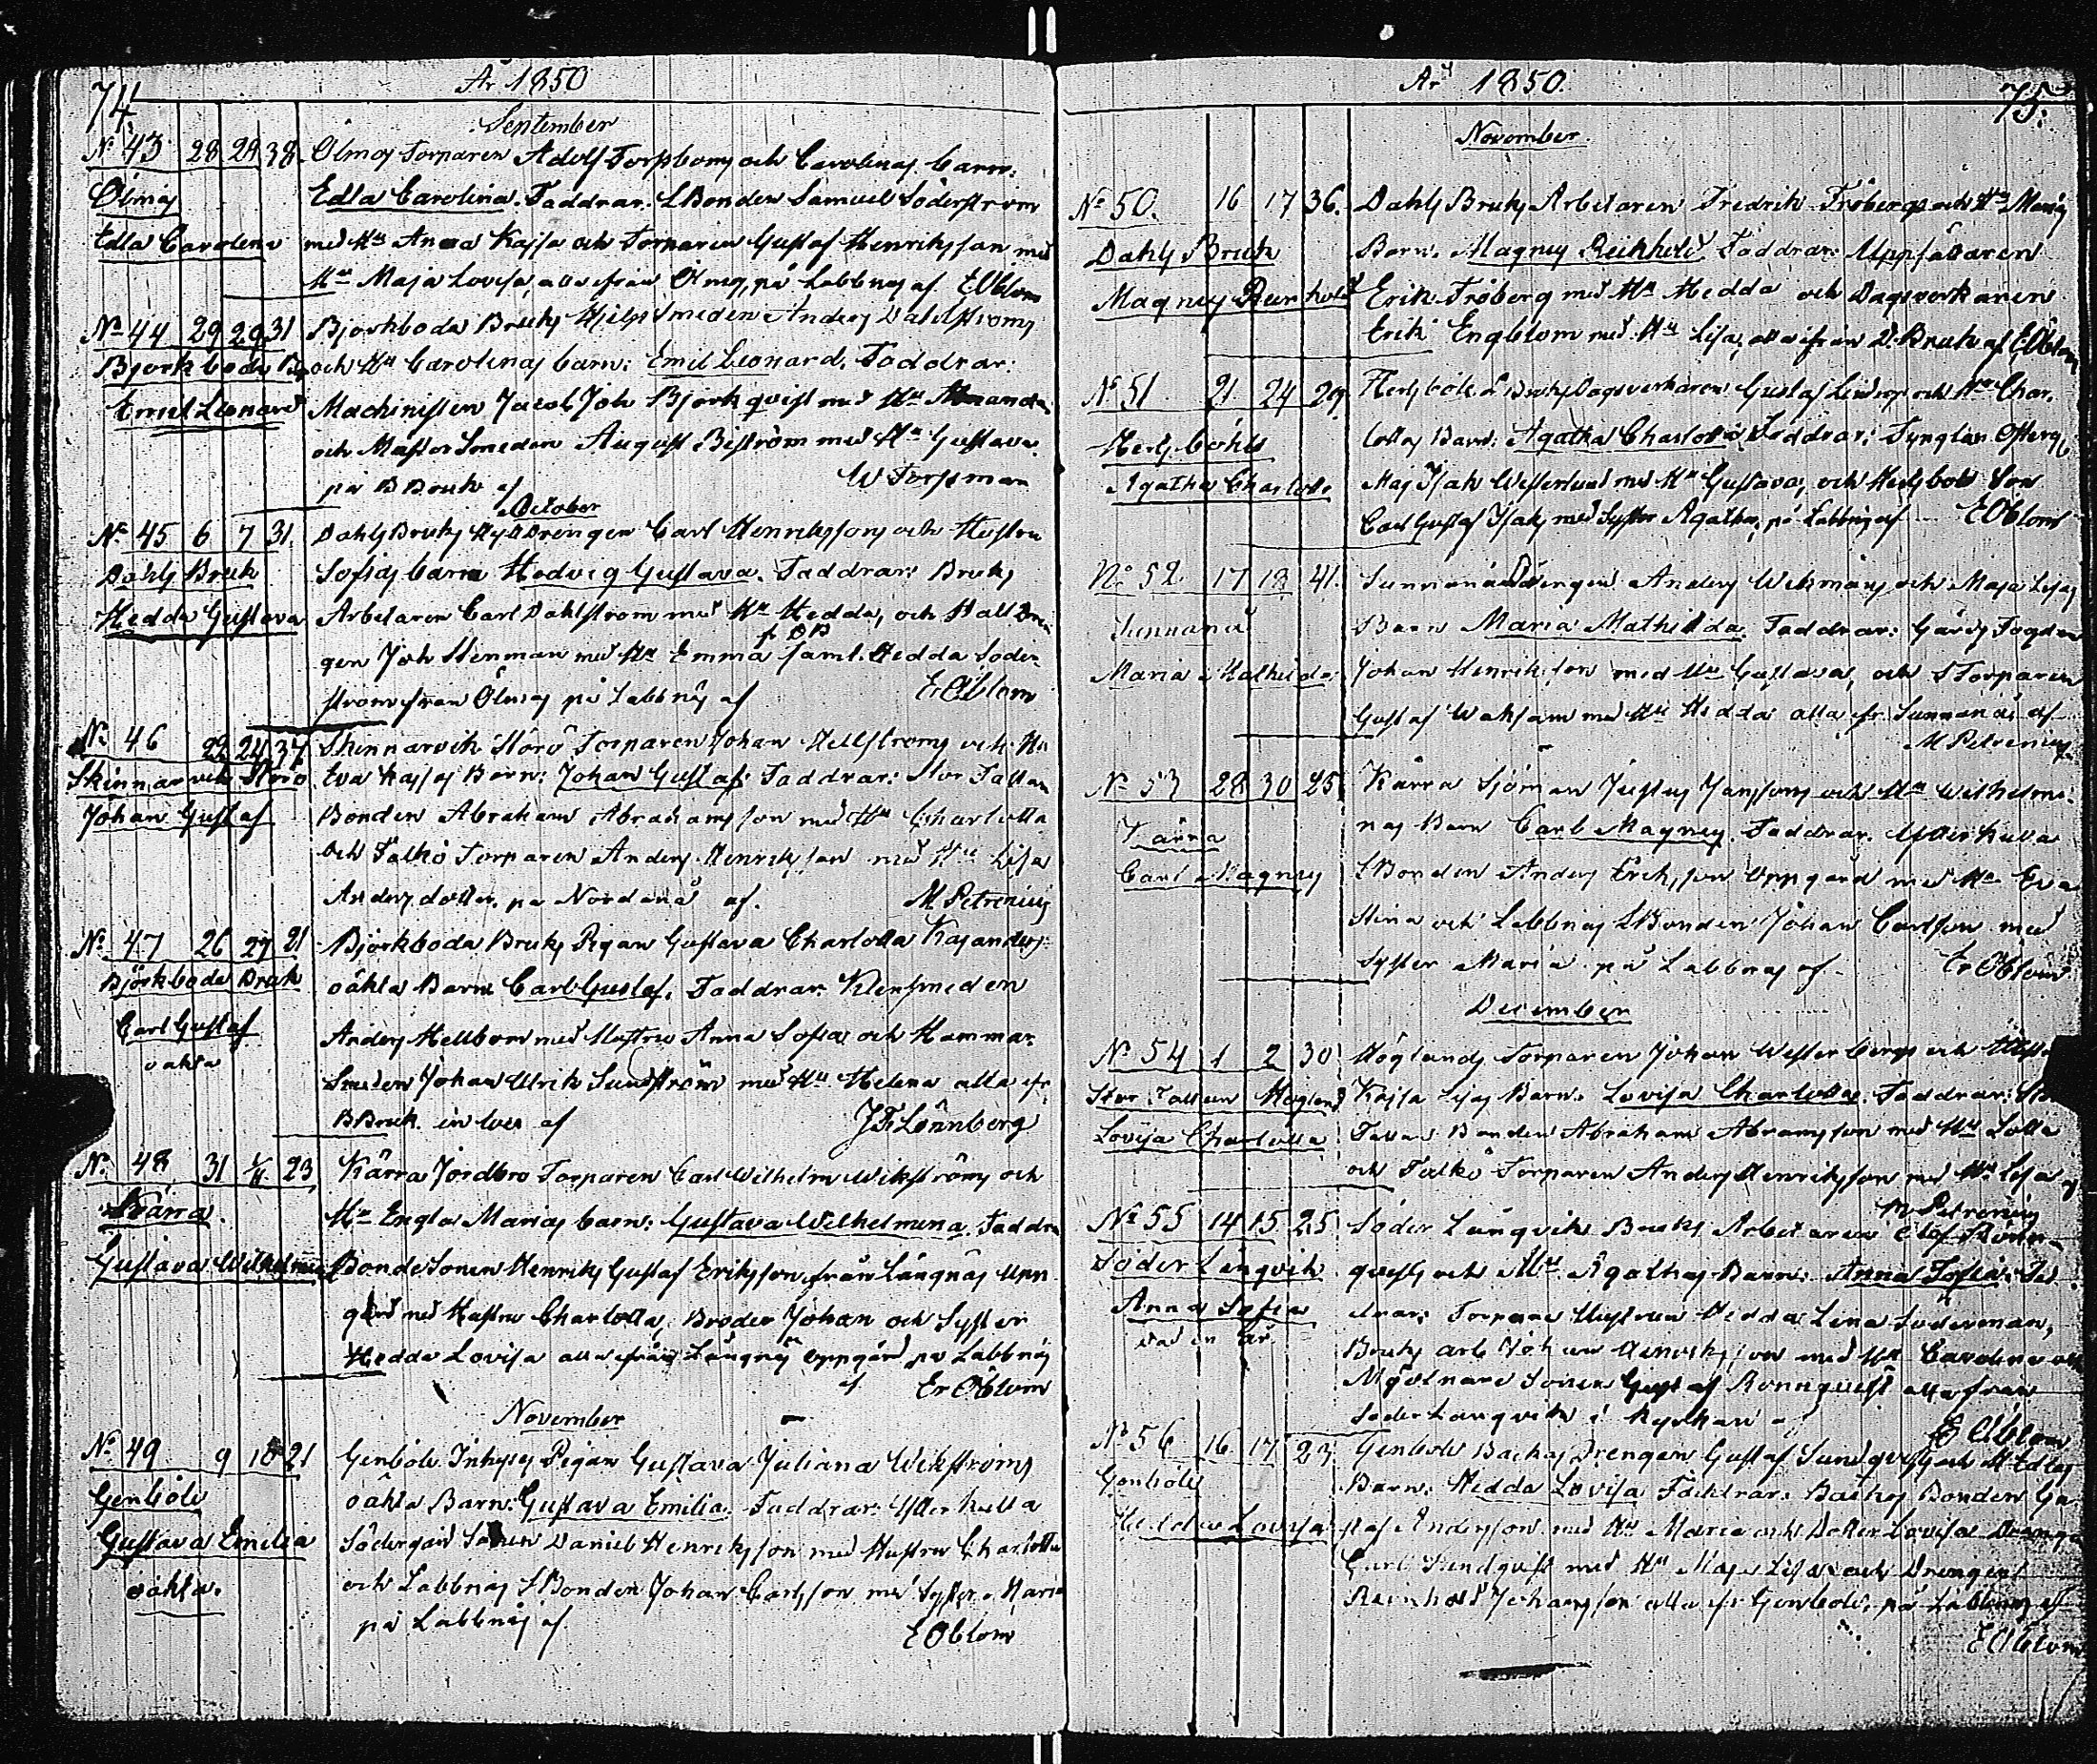 74.
År 1850
September
No 43 28 29 38. Ölmos Torparen Adolf Torsboms och Carolinas barn:
Ölmos Edla Carolina. Faddrar. LBonden Samuel Söderström
Edla Carolina med Hu Anna Kajsa och Torparen Gustaf Henriksson med
Hu Maja Lovisa, alla ifrån Ölmos, på Labbnäs af EOblom
No 44 29 29 31 Björkboda Bruks Hjelpsmeden Anders Dahlströms
Björkboda Br och Hu Carolinas barn: Emil Leonard. Faddrar:
Emil Leonard Machinisten Jacob Joh Björkqvist med Hu Amanda
och Mästersmeden August Biström med Hu Gustava.
på B Bruk af W Forssman
October
No 45 6 7 31. Dahls Bruks Drengen Carl Henrikssons och Hustru
Dahls Bruk Sofias barn Hedvig Gustava. Faddrar: Bruks
Hedda Gustava Arbetaren Carl Dahlström med Hu Hedda, och Stalldren
fr DB
gen Joh Stenman med Hu Emma saml. Hedda Söder
ström från Ölmos på Labbnäs af Er Oblom
No 46 22 24 37 Skinnarvik Storö Torparen Johan Hellströms och Hu
Skinnarvik Storö Eva Kajsas Barn: Johan Gustaf: Faddrar: Stor Tallen
Johan Gustaf Bonden Abraham Abrahamsson med Hu Charlotta
och Falkö Torparen Anders Henriksson med Hu Lisa
Andersdotter, på Nordanå af. M Petrenius
No 47 26 27 21 Björkboda Bruks Pigan Gustava Charlotta Kajanders
Björkboda Bruk oäkta Barn Carl Gustaf. Faddrar. Klensmeden
Carl Gustaf Anders Hellbom med Hustru Anna Sofia och Hammar
oäkta
Smeden Johan Ulrik Sundström med Hu Helena alla fr
B Bruk af J F Lönnberg
No 48 31 1/11 23 Kärra Jordbro Torparen Carl Wilhelm Wikströms och
Kärra. Hu Engla Marias barn: Gustava Wilhelmina. Faddra
Gustava Wilhelmina BondeSonen Henriks Gustaf Eriksson från Långnäs Upp
gård med Hustru Charlotta, Broder Johan och Syster
Hedda Lovisa alla ifrån Långnäs Oppgård på Labbnäs
af Er Oblom
November
No 49 9 10 21 Genböle Inhyses Pigan Gustava Juliana Wikströms
Genböle oäkta Barn: Gustava Emilia. Faddrar: Ytterkulla
Gustava Emilia Södergård Sonen Daniel Henriksson med Hustru Charlotta
oäkta. och Labbnäs LBonden Johan Carlsson med Syster Maria
på Labbnäs af.
E Oblom
År 1850.
75.
November.
No 50. 16 17 36. Dahls Bruks Arbetaren Fredrik Frobergs och Hu Marias
Dahls Bruk Barn. Magnus Reinhold Faddrar: Uppsättaren
Magnus Reinhold Erik Fröberg med Hu Hedda och Dagsverkaren
Erik Engblom med Hu Lisa, alla ifrån D. Bruk af EOblom
No 51 21 24 29 Hertsböle LBruks Dagsverkaren Gustaf Linds och Hu Char-
Hertsböle lottas Barn: Agatha Charlotta Faddrar:
Agatha Charlotta Isak Westerlund med Hu Gustava, och Hertsböle Son
Carl Gustaf Isaks med Syster Agatha, på Labbnäs af E Oblom
No 52 17 18 41. Sunnanå Drengen Anders Wikmans och Maja Lisas
Sunnanå Barn Maria Mathilda Faddrar: Gårds Fogden
Maria Mathilda Johan Henriksson med Hu Gustava, och STorparen
Gustaf Waksam med Hu Hedda alla fr Sunnanå, af
M Petrenius
No 53 28 30 25 Kärra Sjöman Justus Janssons och Hu Wilhelmi-
Kärra nas Barn Carl Magnus. Faddrar. Ytterkulla
Carl Magnus LBonden Anders Eriksson Oppgård med Hu Eva
Stina och Labbnäs LBonden Johan Carlsson med
Syster Maria på Labbnäs af. Er Oblom
December
No 54 1 2 30 Höglunds Torparen Johan Westerbergs och Hust
Stor Tallen Höglund Kajsa Lisas Barn. Lovisa Charlotta. Faddrar: St
Lovisa Charlotta Bonden Abraham Abramsson med Hu Lotta
och Falkö Torparen Anders Henriksson med Hu Lisa af
M Petrenius
No 55 14 15 25 Söder Långvik Bruks Arbetaren Olof Rönn-
Söder Långvik qvists och Hu Agathas Barn: Anna Sofia. Fad
Anna Sofia drar: Torpare Hustrun Hedda Lena Söderman,
Bruks arb Johan Henriksson med Hu Carolina och
Mjölnare Sonen Gustaf Rönnqvist alla från
Söder Långvik i Kyrkan af E Oblom
No 56 16 17 23 Genböle Backas Drengen Gustaf Sundqvists och Hedlas
Genböle Barn. Hedda Lovisa Faddrar: Backas Bonden Gu-
Hedda Lovisa staf Andersson med Hu Maria och Dotter Lovisa Drengen
Carl Sundqvist med Hu Maja Lisa och Drengen
Reinhold Johansson alla fr Genböle, på Labbnäs af
E Oblom